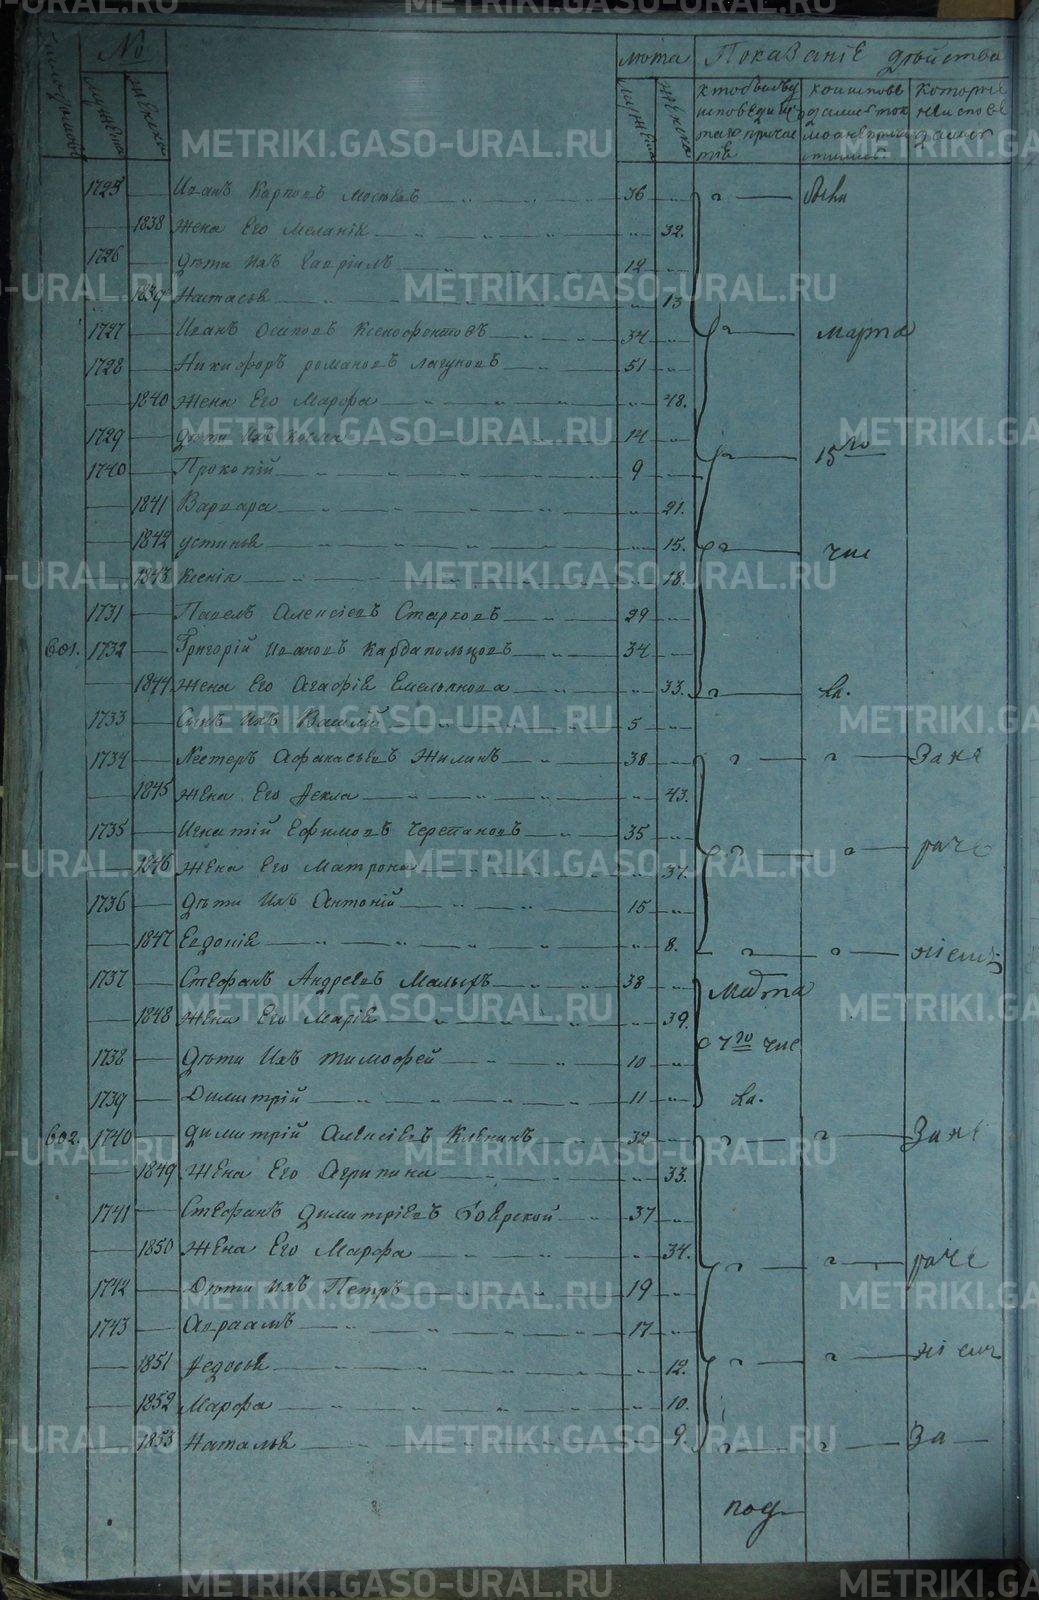 № лѣта Показанiе дѣйства
1725 Иванъ Карповъ 36 были
1838 жена Его Меланiя 32.
1726 дѣти ихъ Гаврiилъ 12
1839 Настасья 13
1727 Иванъ Осиповъ Ксенофонтовъ 34 марта
1728 Никифоръ романовъ лагуновъ 51
1840 жена Его Марфа 48.
1729 дѣти ихъ Косма 14 15го
1740 Прокопiй 9
1841 Варвара 21.
1842 устинья 15. чис
1843 Ксенiя 18.
1731 Павелъ Алексiевъ Старковъ 29
601. 1732 Григорiй Ивановъ Кардапольцовъ 34
1844 жена Его Агафiя Емельянова 33. ла.
1733 Сынъ ихъ Василiй 5
1734 Нестеръ Афанасьевъ Жилинъ 38 Заня
1845 жена Его Фекла 43.
1735 Игнатiй Ефимовъ Черепановъ 35 раче
1846 жена Его Матрона 37.
1736 дѣти ихъ Антонiй 15
1847 Евдокiя 8.
1737 Стефанъ Андреевъ Малыхъ 38
1848 жена Его Марiя 39. 7го чис
1738 дѣти ихъ тимофей 10
1739 Димитрiй 11 ла.
602. 1740 димитрiй Алексiевъ 32 Заня
1849 жена Его Агрипина 33.
1741 Стефанъ димитрiевъ Боярской 37
1850 жена Его Марфа 34. раче
1742 Дѣти ихъ Петръ 19
1743 Авраамъ 17
1851 Федосья 12.
1852 Марфа 10.
1853 Наталья 9. За
под
METRIKI.GASO-URAL.RU